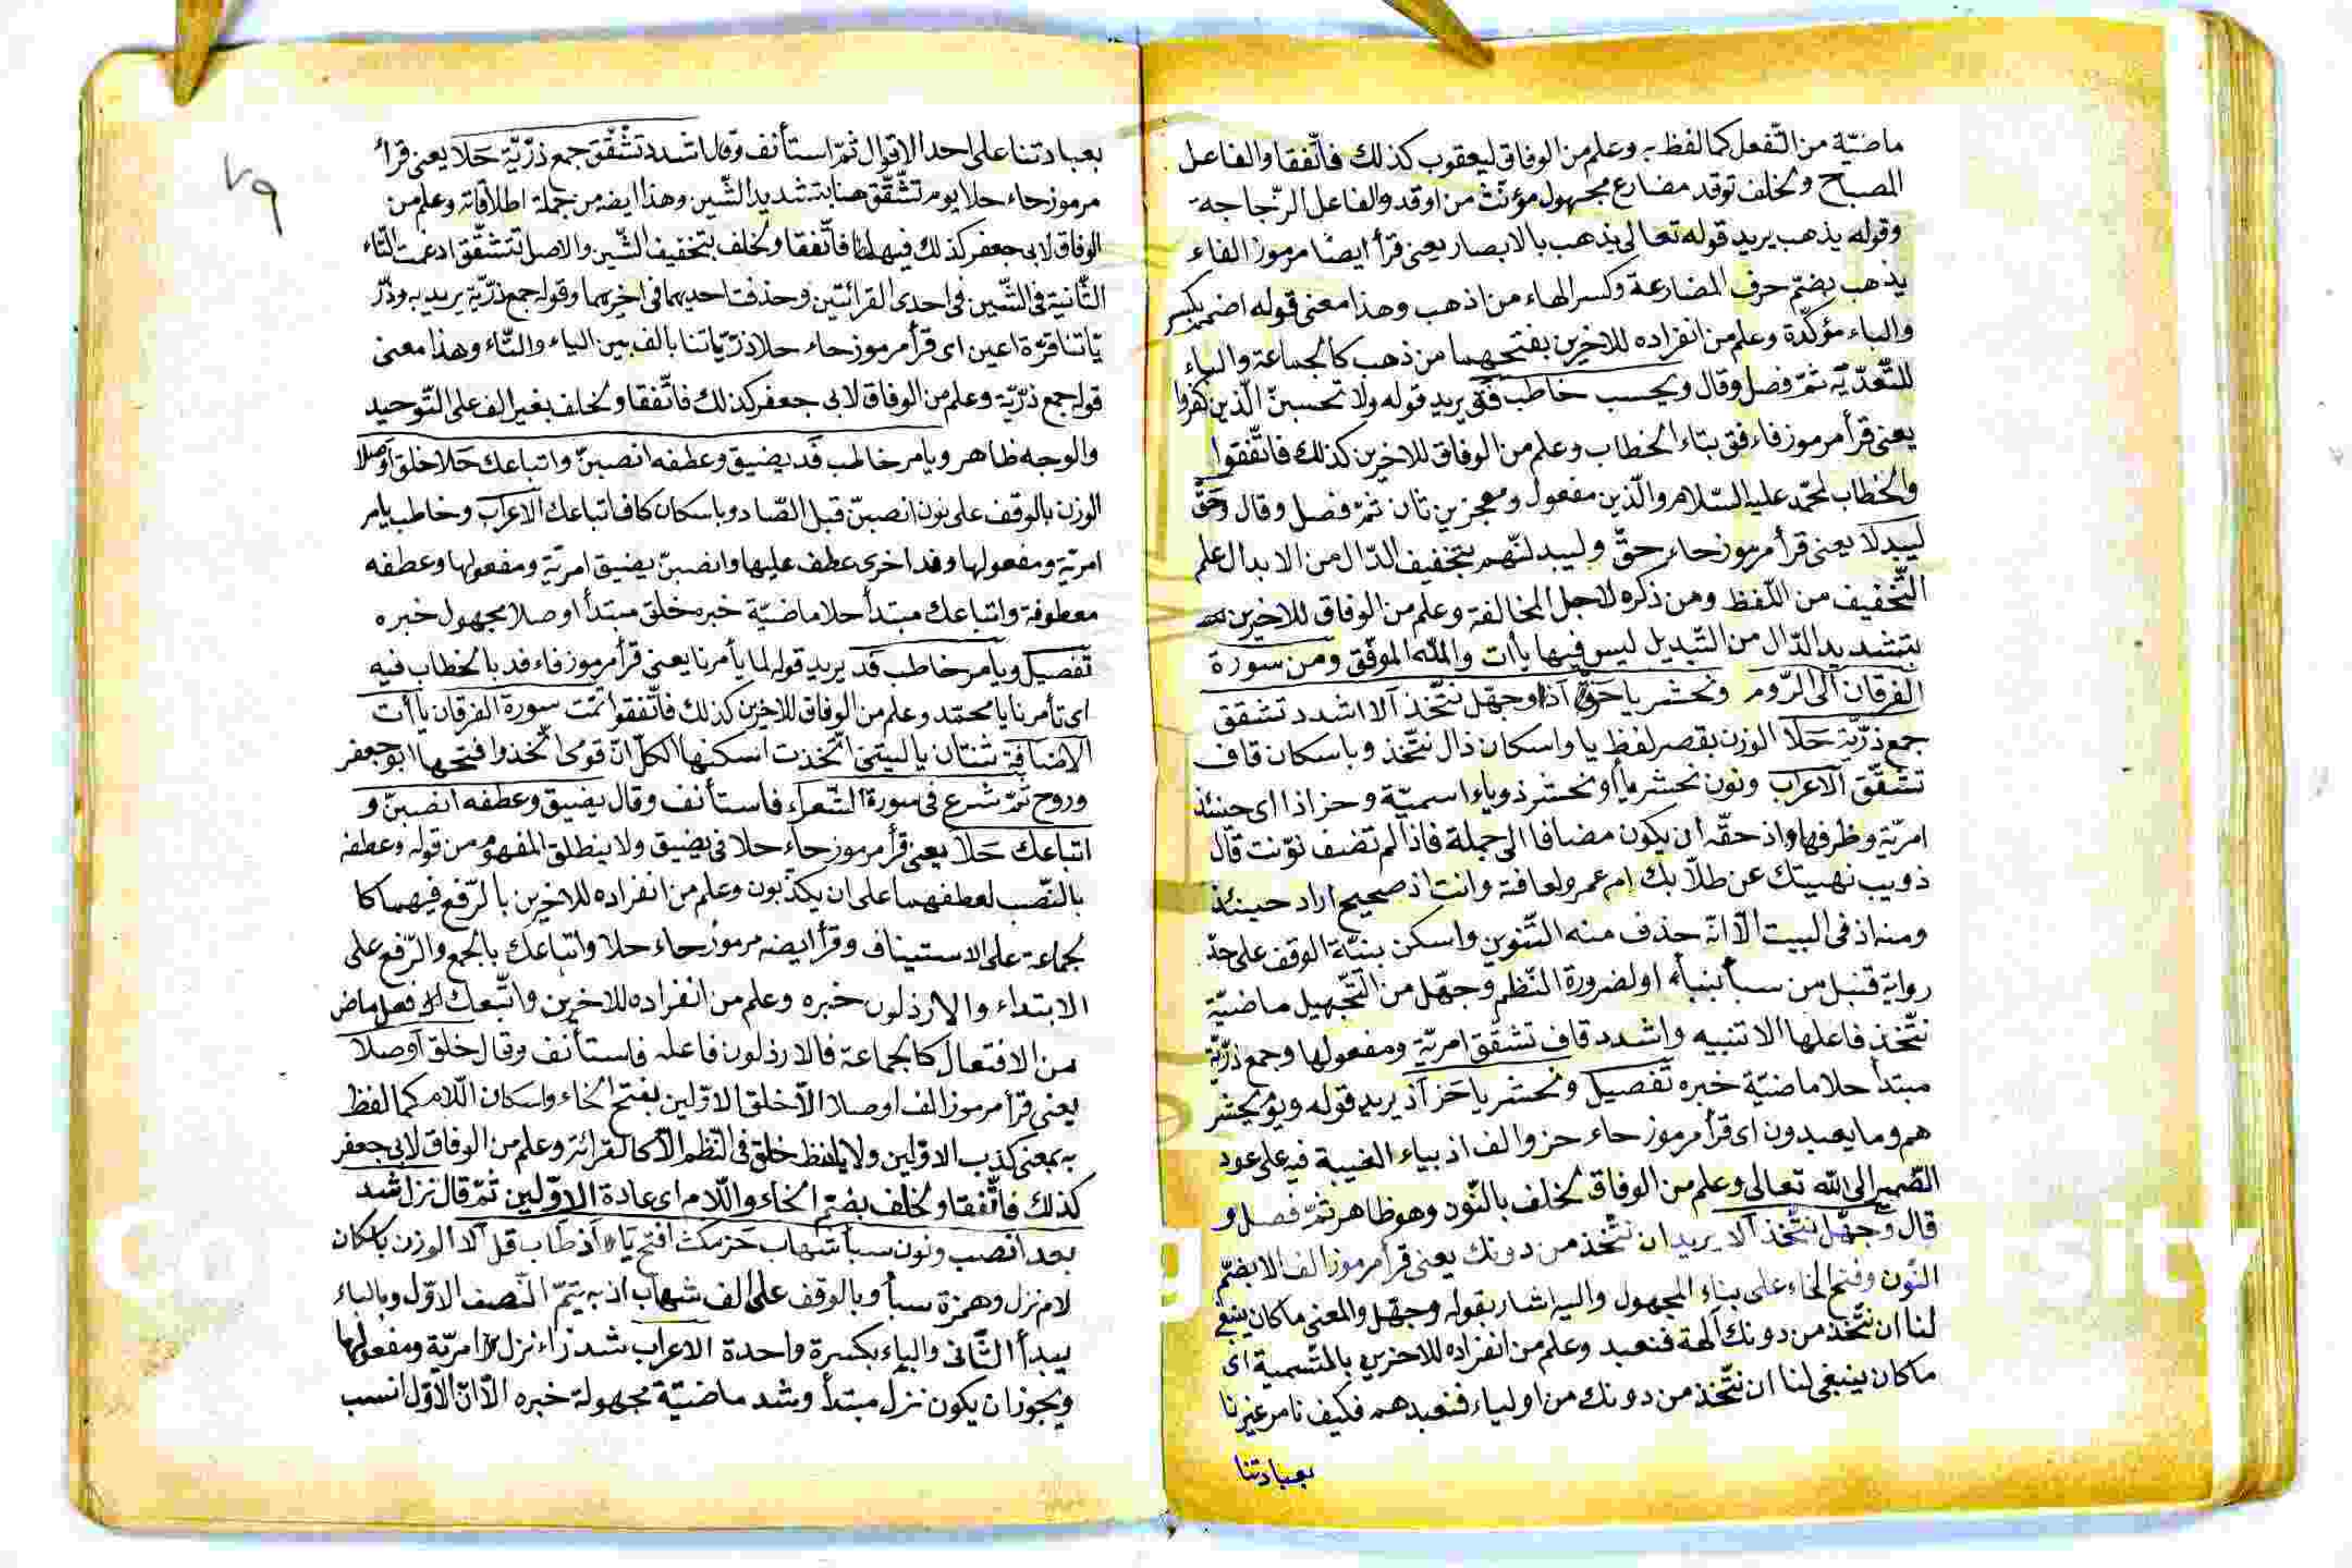 ماضيّة من التّفعل كما لفظ به وعلم من الوفاق ليعقوب كذلك فاتّفقا والفاعل
المصباح ولخلف توقد مضارع مجهول مؤنّث من اوقد والفاعل الزّجاجة
وقوله يذهب يريد قوله تعالى يذهب بالابصار يعنى قرأ ايضا مرموز الفاء
يذهب بضمّ حرف المضارعة وكسر الهاء من اذهب وهذا معنى قوله اضمم بكسر
والباء مؤكّدة وعلم من انفراده للاخرين بفتحهما من ذهب كالجماعة والباء
للتّعدّيّة ثمّ فصل وقال ويحسب خاطب فق يريد قوله ولا تحسبنّ الّذين كفروا
يعنى قرأ مرموز فاء فق بتاء الخطاب وعلم من الوفاق للاخرين كذلك فاتّفقوا
والخطاب لمحمّد عليه السّلام والّذين مفعول ومعجزين ثان ثمّ فصل وقال وحقّ
ليبدلا يعنى قرأ مرموز حاء حقّ وليبدلنّهم بتخفيف الدّال من الابدال علم
التّخفيف من اللّفظ ومن ذكره لاجل المخالفة وعلم من الوفاق للاخرين
بتشديد الدّال من التّبديل ليس فيها ياآت واللّه الموفّق ومن سورة
الفرقان الى الرّوم ونحشر يا حز اذ وجهّل نتّخذ آلا اشدد تشقق
جمع ذرّيّة حلا الوزن بقصر لفظ يا واسكان ذال نتّخذ وباسكان قاف
تشقّق الاعراب ونون نحشر يا أو نحشر ذو ياء اسميّة وحز اذا اى حينئذ
امريّة وظرفها واذ حقّه ان يكون مضافا الى جملة فاذا لم تضف نوّنت قال
ذويب نهيتك عن طلّابك ام عمرو لعافية وانت اذ صحيح اراد حينئذ
ومنه اذ فى البيت الّا انّه حذف منه التّنوين واسكن بنيّة الوقف على حدّ
رواية قنبل من سبأ بنبأ او لضرورة النّظم وجهّل من التّجهيل ماضيّة
نتّخذ فاعلها الا تنبيه واشدد قاف تشقّق امريّة ومفعولها وجمع ذرّيّة
مبتدأ حلا ماضيّة خبره تفصيل ونحشر يا حز اذ يريد قوله ويوم يحشر
هم وما يعبدون اى قرأ مرموز حاء حز والف اذ بياء الغيبة فيه على عود
الضّمير الى اللّه تعالى وعلم من الوفاق لخلف بالنّون وهو ظاهر ثمّ فصل و
قال وجهّل نتّخذ آلا يريد ان نتّخذ من دونك يعنى قرأ مرموز الف الا بضمّ
النّون وفتح الخاء على بناء المجهول واليه اشار بقوله وجهّل والمعنى ما كان ينبغى
لنا ان نتّخذ من دونك آلهة فنعبد وعلم من انفراده للاخرين بالتّسمية اى
ما كان ينبغى لنا ان نتّخذ من دونك من اولياء فنعبدهم فكيف نامر غيرنا
بعبادتنا
٧٩
بعبادتنا على احد الاقوال ثمّ استأنف وقال اشدد تشقّق جمع ذرّيّة حلا يعنى قرأ
مرموز حاء حلا يوم تشّقّق هنا بتشديد الشّين وهذا ايضه من جملة اطلاقاته وعلم من
الوفاق لابى جعفر كذلك فيهما فاتّفقا ولخلف بتخفيف الشّين والاصل تتشقّق ادغمت التّاء
الثّانية فى الشّين فى احدى القرائتين وحذفت احديهما فى اخريهما وقوله جمع ذرّيّة يريد به وذرّ
يّاتنا قرّة اعين اى قرأ مرموز حاء حلا ذرّيّاتنا بالف بين الياء والتّاء وهذا معنى
قوله جمع ذرّيّة وعلم من الوفاق لابى جعفر كذلك فاتّفقا ولخلف بغير الف على التّوحيد
والوجه ظاهر ويامر خاطب فد يضيق وعطفه انصبنّ واتباعك حلا خلق اوصلا
الوزن بالوقف على نون انصبنّ قبل الصّاد وباسكان كاف اتباعك الاعراب وخاطب يامر
امريّة ومفعولها وفد اخرى عطف عليها وانصبنّ يضيق امريّة ومفعولها وعطفه
معطوفة واتباعك مبتدأ حلا ماضيّة خبره خلق مبتدأ اوصلا مجهول خبره
تفصيل ويامر خاطب فد يريد قوله لما يأمرنا يعنى قرأ مرموز فاء فد بالخطاب فيه
اى تأمرنا يا محمّد وعلم من الوفاق للاخرين كذلك فاتّفقوا تمّت سورة الفرقان ياآت
الاضافة ثنتان يا ليتنى اتّخذت اسكنها الكلّ انّ قومى اتّخذوا فتحها ابو جعفر
وروح ثمّ شرع فى سورة الشّعراء فاستأنف وقال يضيق وعطفه انصبنّ و
اتباعك حلا يعنى قرأ مرموز حاء حلا فى يضيق ولا ينطلق المفهوم من قوله وعطفه
بالنّصب لعطفهما على ان يكذّبون وعلم من انفراده للاخرين بالرّفع فيهما كا
لجماعة على الاستيناف وقرأ ايضه مرموز حاء حلا واتباعك بالجمع والرّفع على
الابتداء والارذلون خبره وعلم من انفراده للاخرين واتّبعك فعل ماض
من الافتعال كالجماعة فالارذلون فاعله فاستأنف وقال خلق اوصلا
يعنى قرأ مرموز الف اوصلا الّا خلق الاوّلين بفتح الخاء واسكان اللّام كما لفظ
به بمعنى كذب الاوّلين ولا يلفظ خلق فى النّظم الّا كالقرائة وعلم من الوفاق لابى جعفر
كذلك فاتّفقا ولخلف بضمّ الخاء واللّام اى عادة الاوّلين ثمّ قال نزل شد
بعد انصب ونون سبأ شهاب حز مكث افتح يا اذ طاب قل آلا الوزن باسكان
لام نزل وهمزة سبأ وبالوقف على الف شهاب اذ به يتمّ النّصف الاوّل وبالباء
يبدأ الثّانى والباء بكسرة واحدة الاعراب شد زاء نزل امريّة ومفعولها
ويجوز ان يكون نزل مبتدأ وشد ماضيّة مجهولة خبره الّا انّ الاوّل انسب